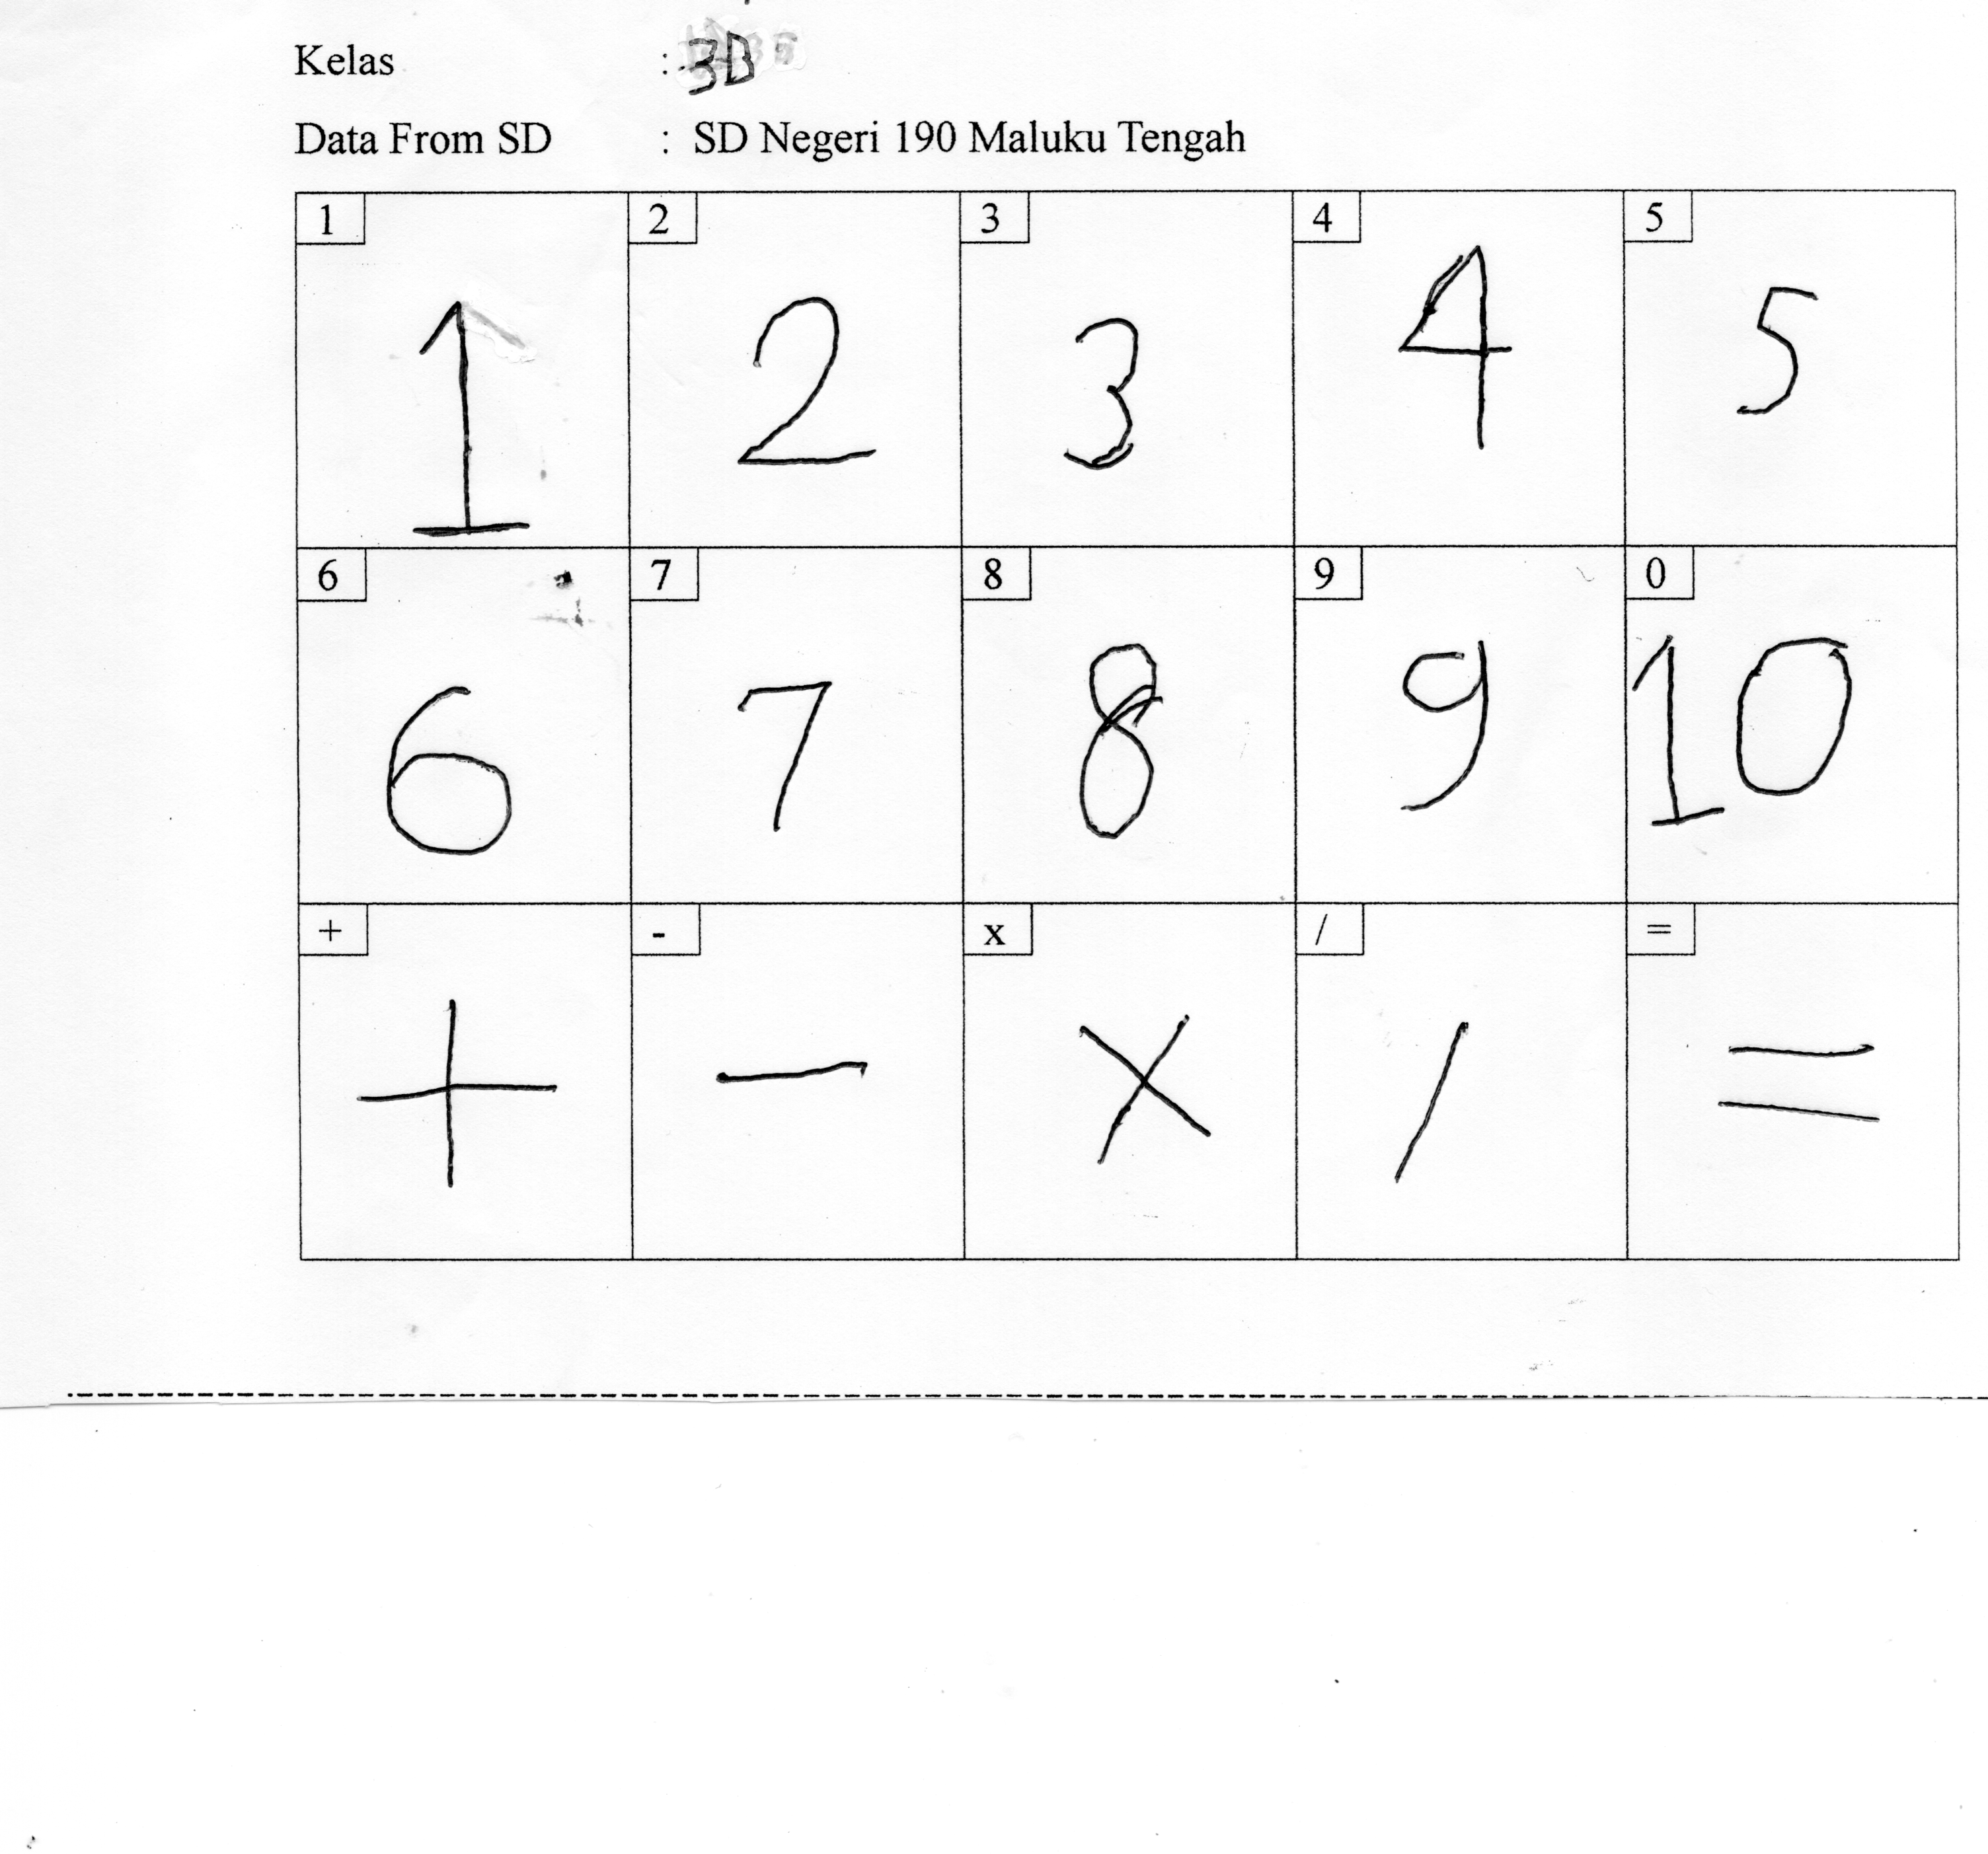 Kelas : 3B
Data From SD : SD Negeri 190 Maluku Tengah
1 2 3 4 5
1 2 3 4 5
6 7 8 9 0
6 7 8 9 10
+ - x / =
+ - x / =